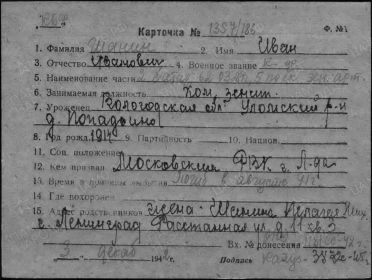 Карточка № 1357/186 Ф. №1
1. Фамилия Шанин 2. Имя Иван
3. Отчество Иванович 4. Военное звание
5. Наименование части 2
6. Занимаемая должность Ком. зенит.
7. Уроженец Вологодская обл. Уломский р-н
д. Попадьино
8. Год рожд. 1914 9. Партийность 10. Национ.
11. Соц. положение
12. Кем призван Московским РВК г. Л-да
13. Время и причины выбытия Погиб в августе 41 г
14. Где похоронен
15. Адрес родственников жена - Шанина Пелагея
г. Ленинград Расстанная ул. д. 11 кв. 2
Вх. № донесения
3 декаб 194
Подпись